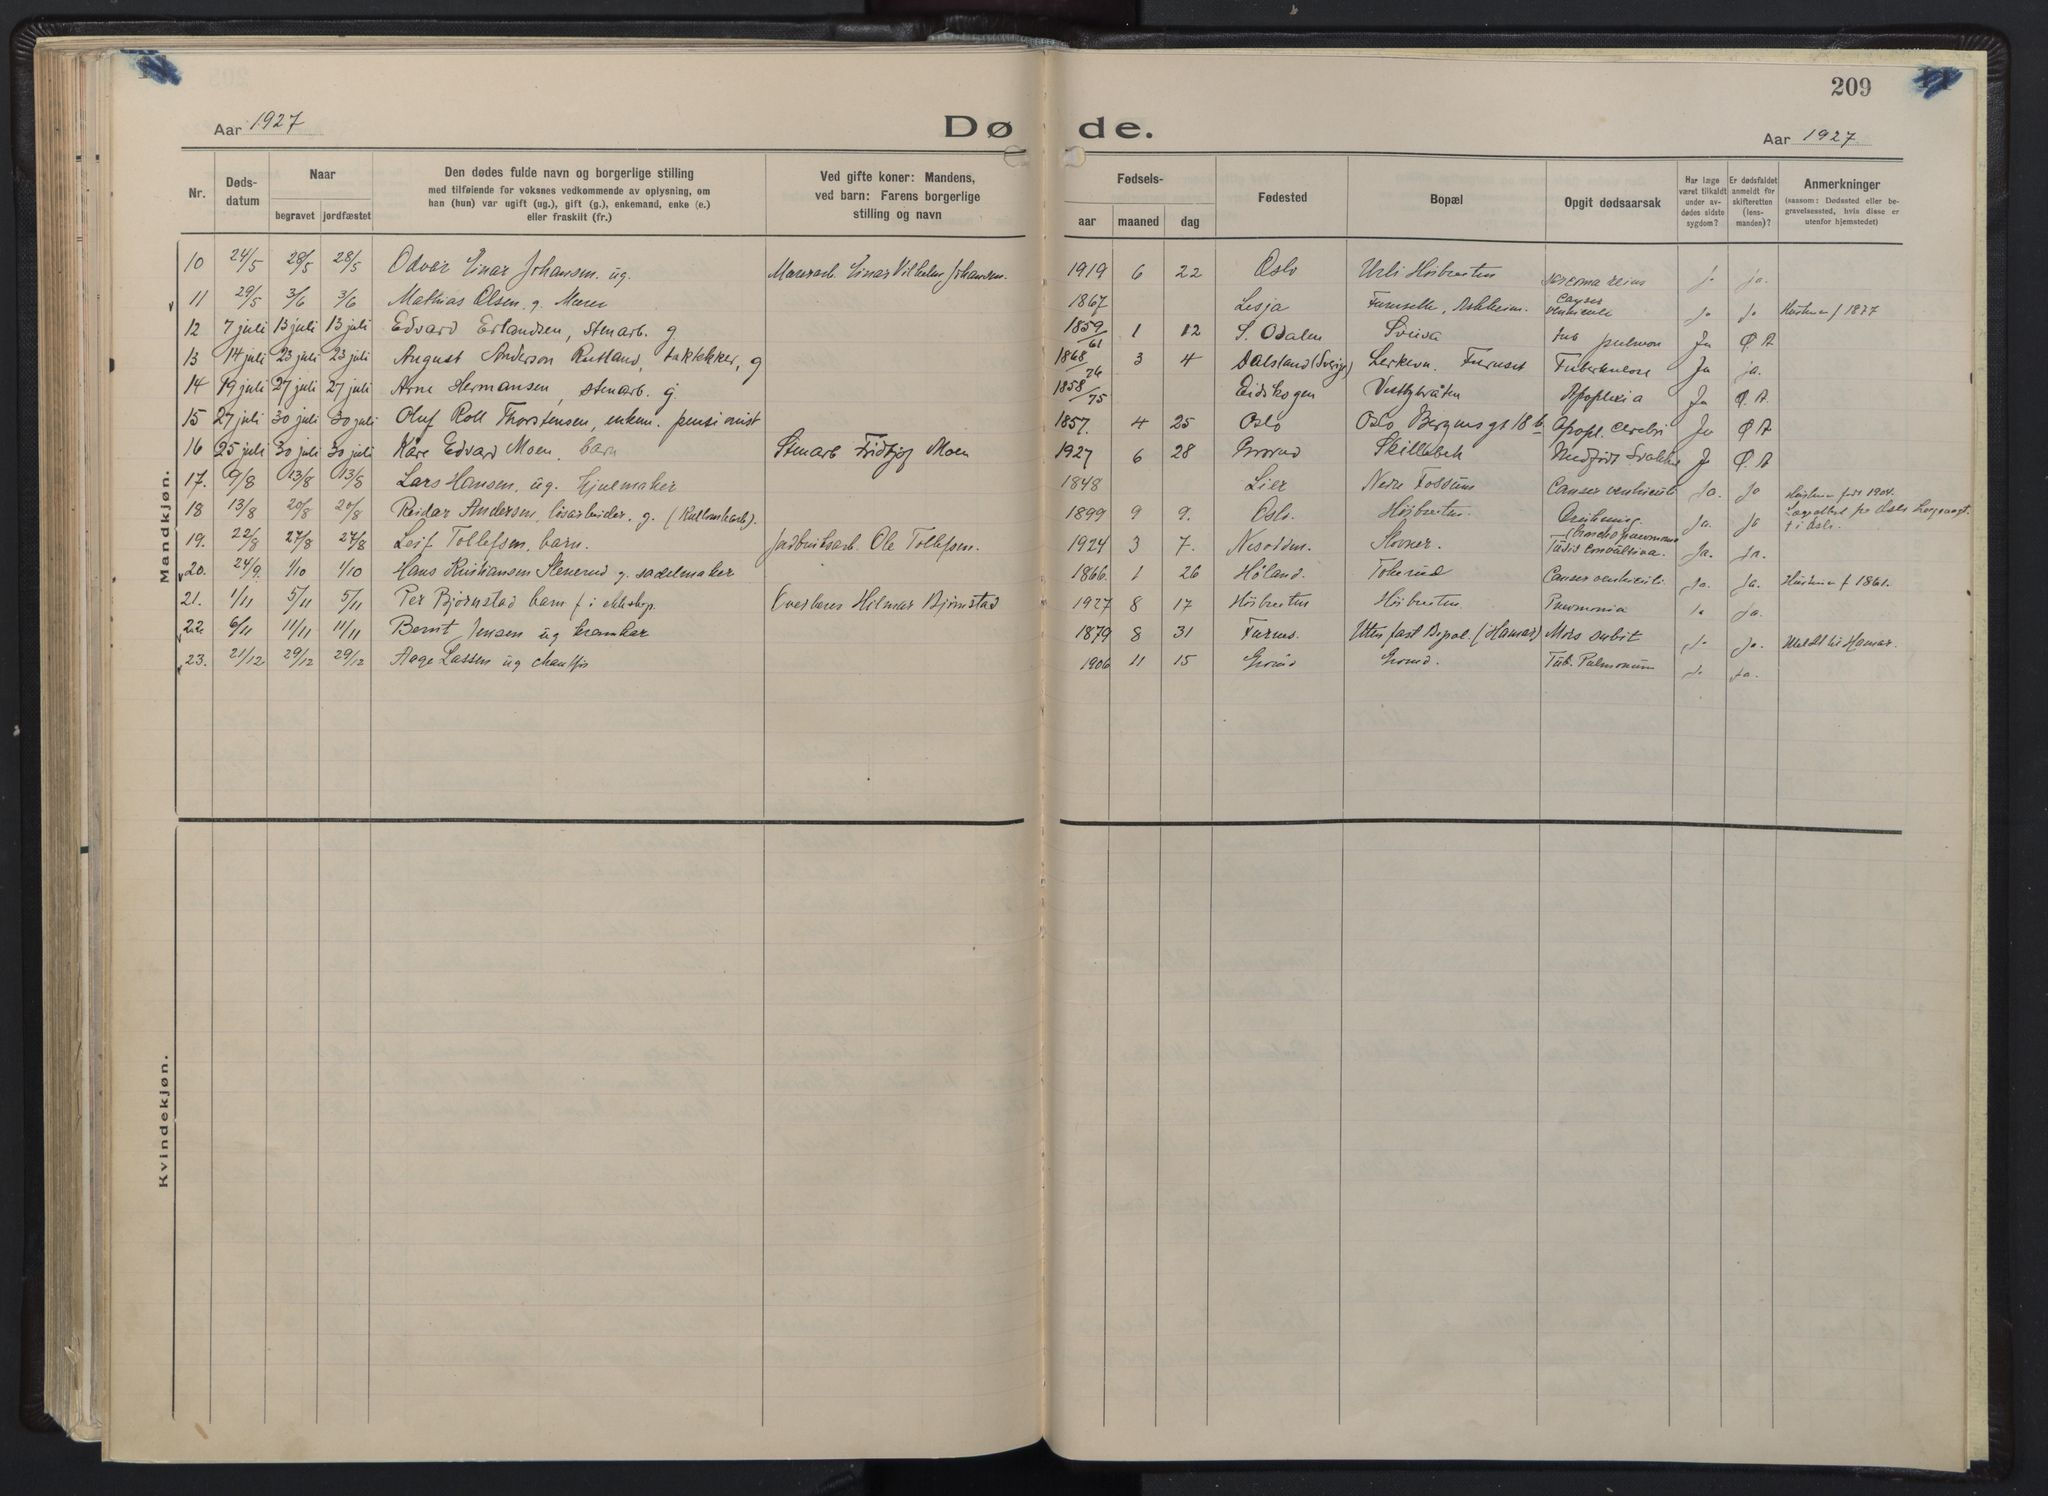 209
Aar 1927
Døde.
Aar 1927
Nr.
Døds-
datum
Naar
begravet
jordfæstet
Den dødes fulde navn og borgerlige stilling
med tilføiende for voksnes vedkommende av oplysning, om
han (hun) var ugift (ug.), gift (g.), enkemand, enke (e.)
eller fraskilt (fr.)
Ved gifte koner: Mandens,
ved barn: Farens borgerlige
stilling og navn
Fødsels-
aar
maaned
dag
Fødested
Bopæl
Opgit dødsaarsak
Har læge
været tilkaldt
under av-
dødes sidste
sygdom?
Er dødsfaldet
anmeldt for
skifteretten
(lens-
manden)?
Anmerkninger
(saasom: Dødssted eller be-
gravelsessted, hvis disse er
utenfor hjemstedet)
Mandkjøn.
10 24/5 28/5 28/5 Odvar Einar Johansen. ug. Einar Vilhelm Johansen. 1919 6 22 Oslo Høibraaten ja ja.
11 29/5 3/6 3/6 Mathias Olsen. g. Murer 1867 Lesja Furuseth, Cancer ventriculi Ja Ja Hustru f 1877
12 7 juli 13 juli 13 juli Edvard Erlandsen, stenarb. g 1859/61 1 12 S. Odalen Tub pulmon Ja Ø A
13 14 juli 23 juli 23 juli August Anderson Rustland, taktekker, g 1868/76 3 4 Dalsland (Sverige) Furuset Tuberkulose Ja ja.
14 19 juli 27 juli 27 juli Arne Hermansen, stenarb. g 1858/75 Eidskogen Vestbybråten Apoplexia Ja Ø. A.
15 27 juli 30 juli 30 juli Oluf Roll Thorstensen, enkem. pensionist 1857. 4 25 Oslo Oslo Bergensgt 18 b Apopl. cerebri Ja Ø A
16 25 juli 30 juli 30 juli Kåre Edvard Moen, barn Stenarb Fridtjof Moen 1927 6 28 Grorud Skillebek Medfødt Svakhet Ja Ø. A
17. 9/8 13/8 13/8 Lars Hansen, ug. hjulmaker 1848 Lier Nedre Fossum Cancer ventriculi Ja. Ja Hustru født 1904.
18 13/8 20/8 20/8 Reidar Andersen, løsarbeider. g. 1899 9 9. Oslo. Høibraaten. Ja. Ja f i Oslo.
19. 22/8 27/8 27/8 Leif Tollefsen, barn. Jordbruksarb. Ole Tollefsen. 1924 3 7. Nesodden. Stovner. Bronchopneumonia Tussis convulsiva. Ja. Ja.
20. 24/9. 1/10 1/10 Hans Kristiansen Stenerud g. sadelmaker 1866. 1 26 Høland. Tokerud Cancer ventriculi Ja. Ja. Hustru f 1861.
21. 1/11 5/11 5/11 Per Bjørnstad barn f i ektskap. Hilmar Bjørnstad 1927 8 17 Høibraaten Høibraaten Pneumonia Ja ja.
22 6/11 11/11 11/11 Bernt Jensen ug kramkar 1879 8 31 Furnes. Uten fast Bopæl (Hamar) Mors subit Ja Ja. Meldt til Hamar.
23. 21/12 29/12 29/12 Aage Lassen ug chauffør 1906 11 15 Grorud Grorud. Tub. Pulmonum Ja Ja.
Kvindekjøn.